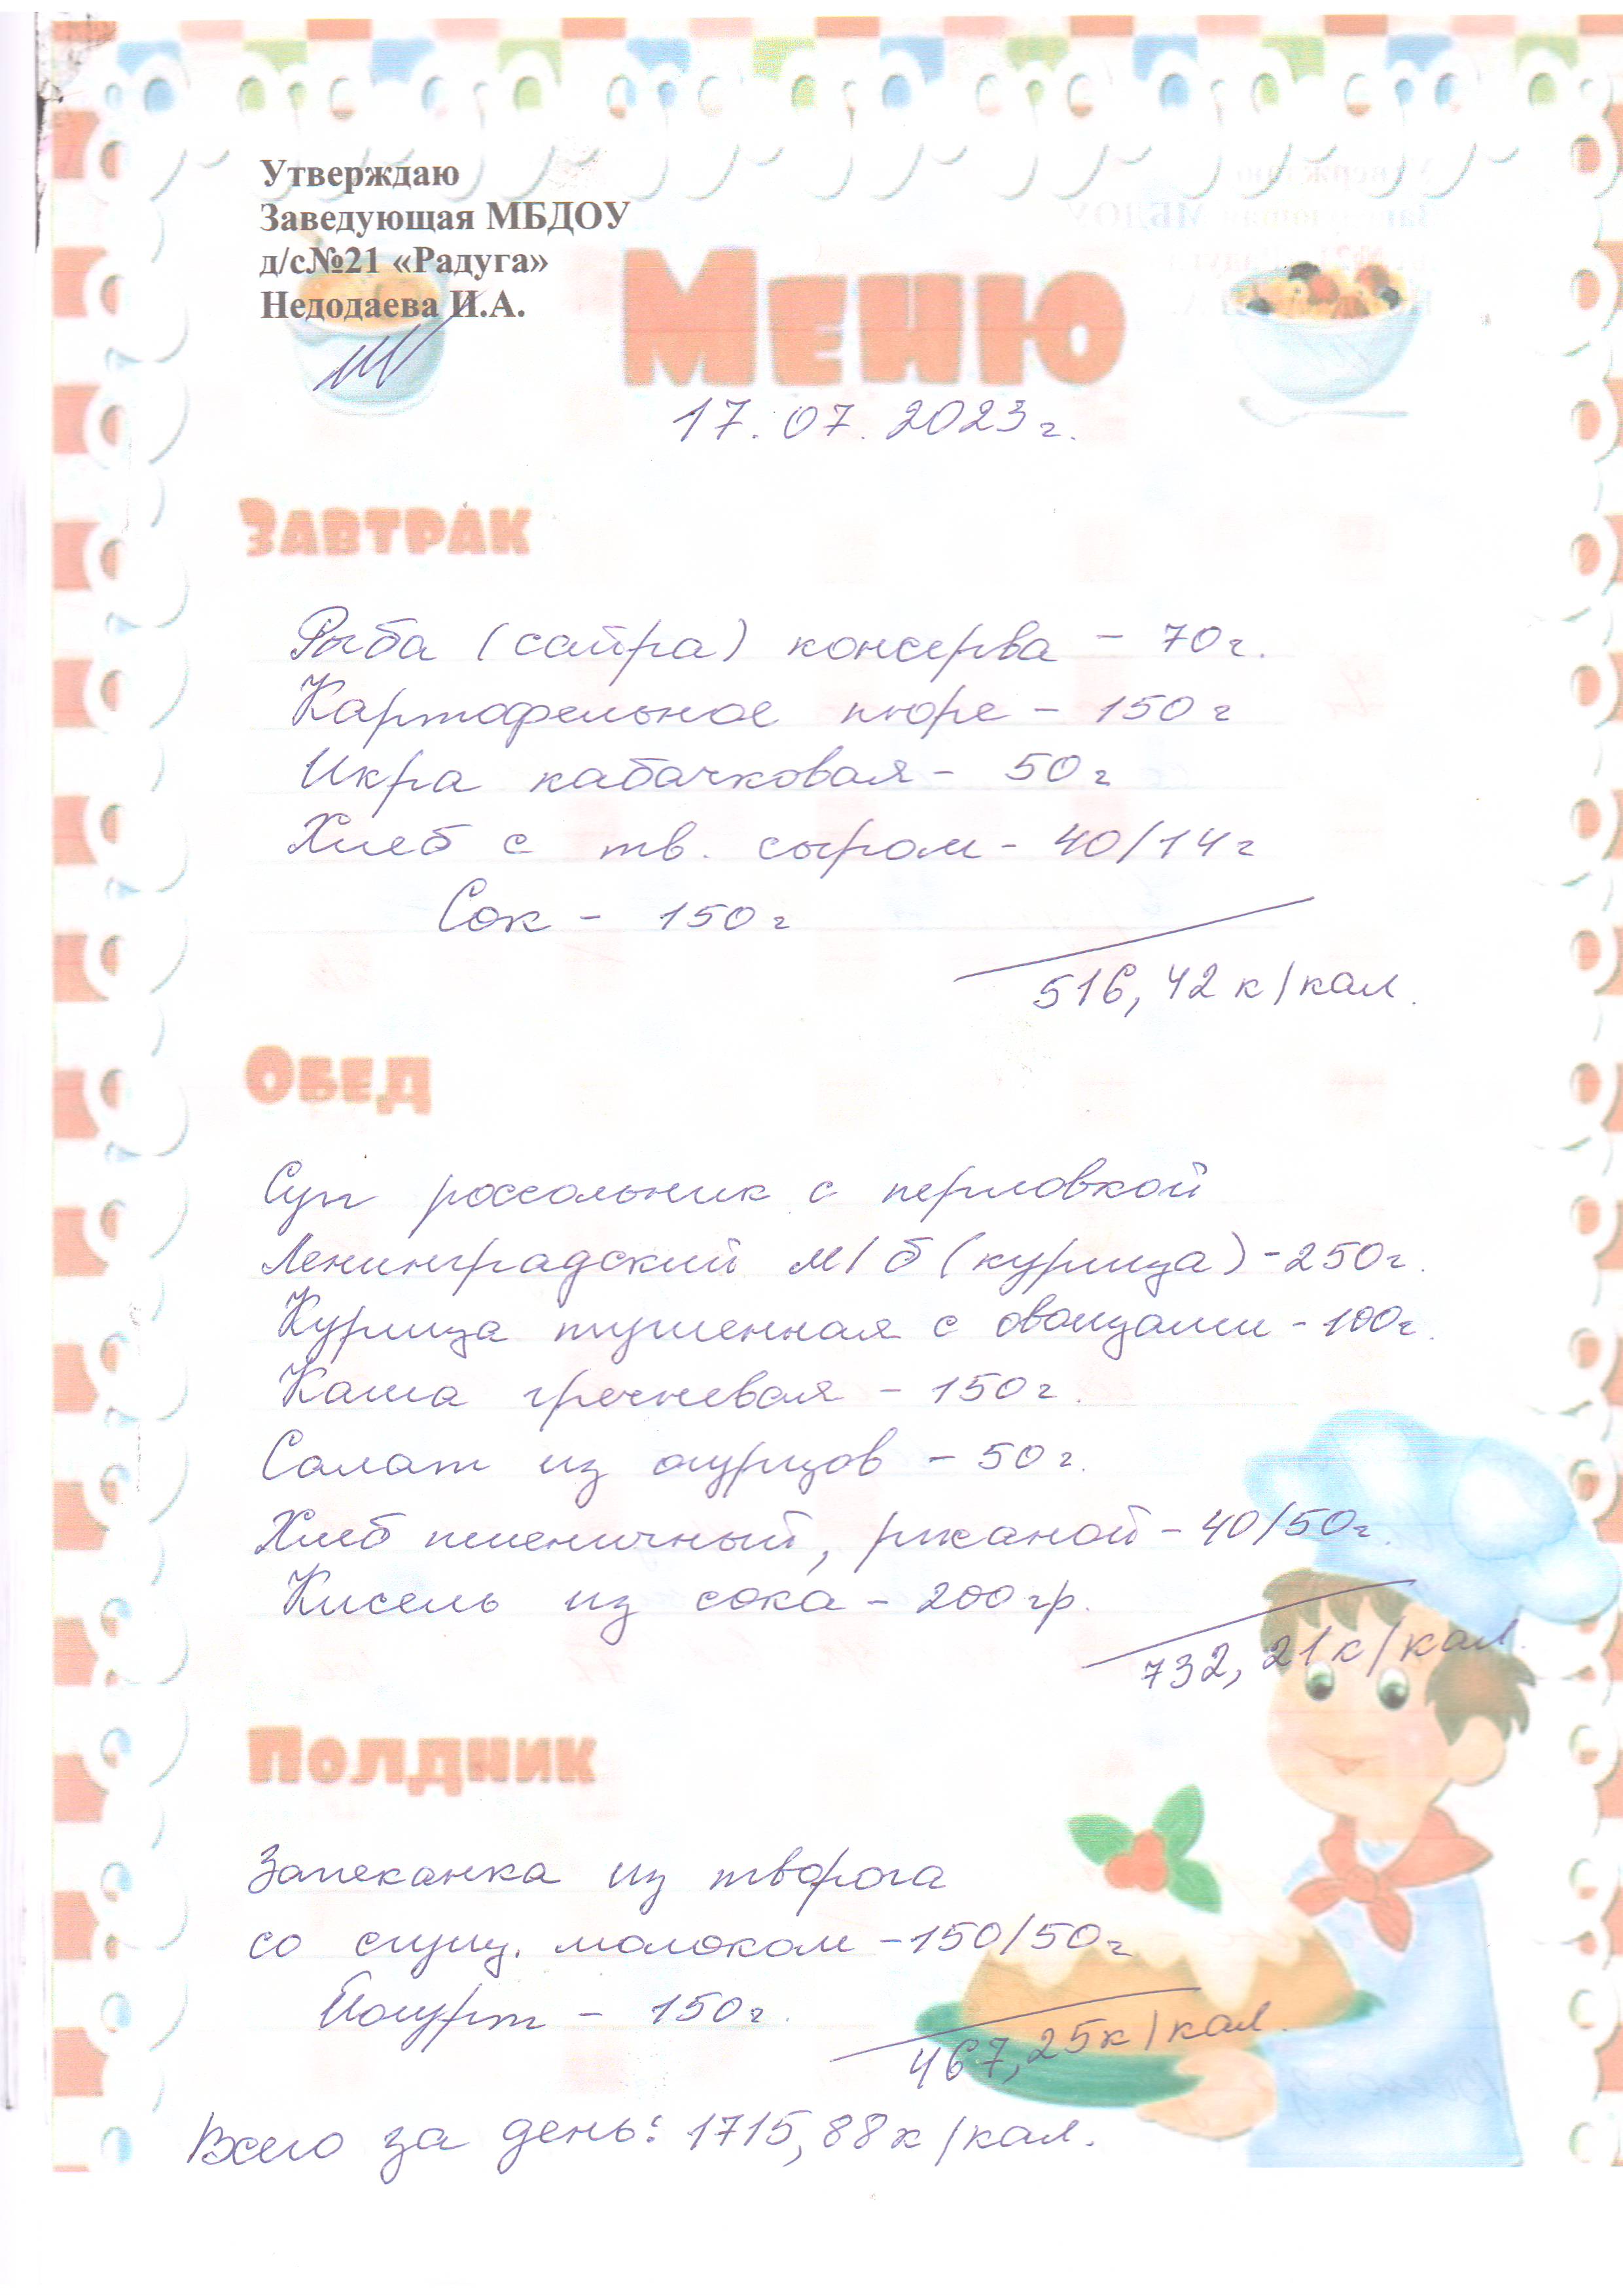 Утверждаю
Заведующая МБДОУ
д/с№21 «Радуга»
Недодаева И.А.
Меню
17.07.2023г.
Завтрак
Рыба (сайра) консерва - 70г.
Картофельное пюре - 150г
Икра кабачковая - 50г
Хлеб с тв. сыром - 40/14г
Сок - 150г
516,42 к/кал.
Обед
Суп россольник с перловкой
Ленинградский м/б (курица) - 250г.
Курица тушенная с овощами - 100г.
Каша гречневая - 150г.
Салат из огурцов - 50г.
Хлеб пшеничный, ржаной - 40/50г.
Кисель из сока - 200гр.
732,21к/кал.
Полдник
Запеканка из творога
со сгущ. молоком - 150/50г
Йогурт - 150г.
467,25к/кал.
Всего за день: 1715,88к/кал.